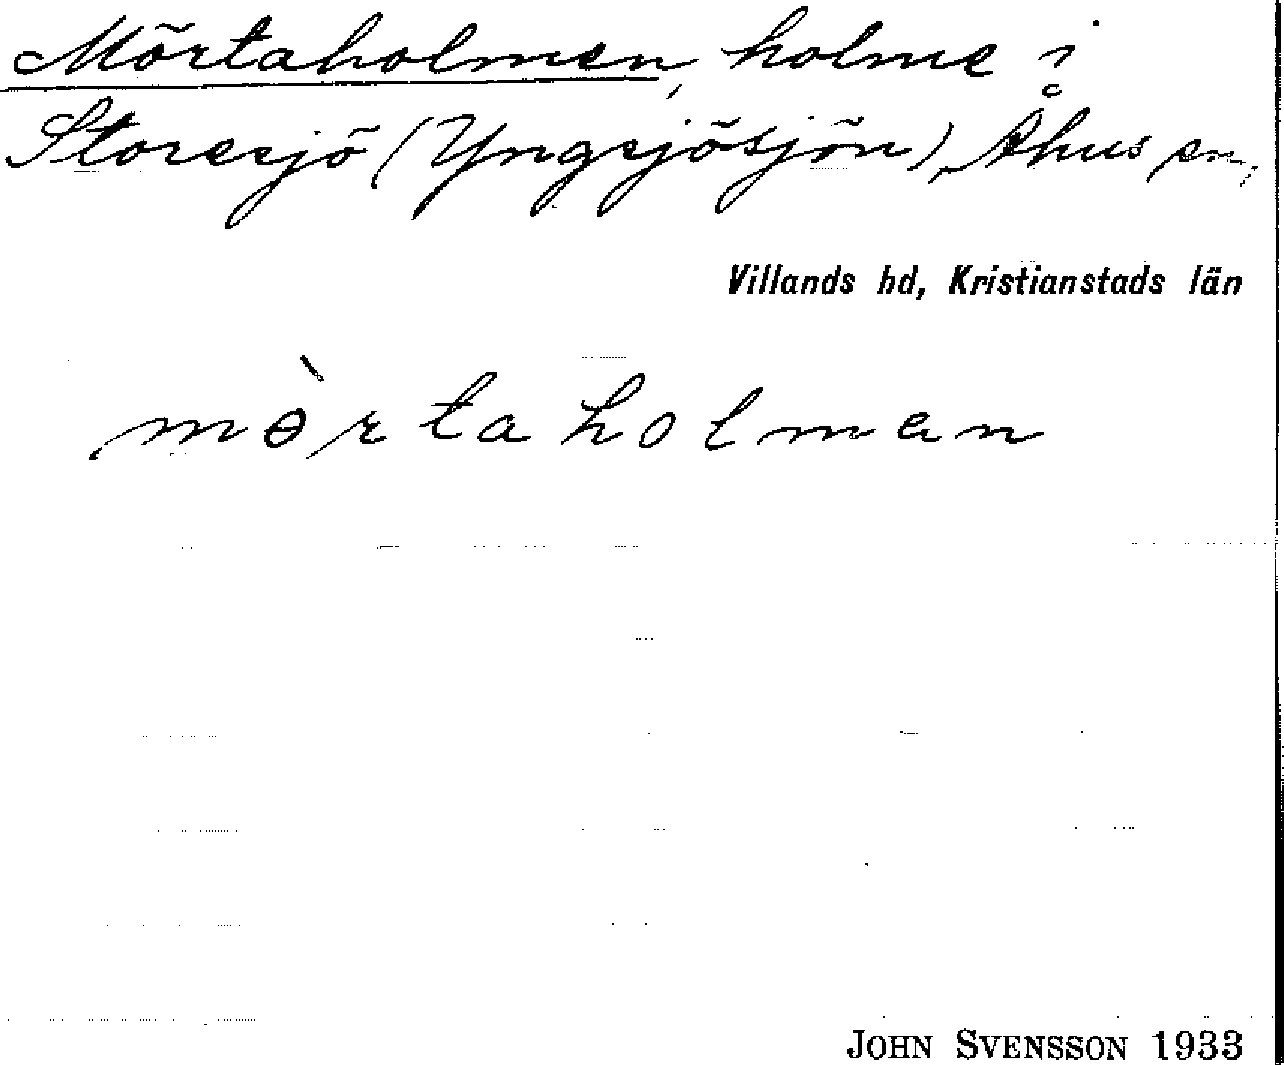 Mörtaholmen, holme i
Storesjö (Yngsjösjön), Åhus sn,
Villands hd, Kristianstads län
mɵ̀rtaholman
JOHN SVENSSON 1933